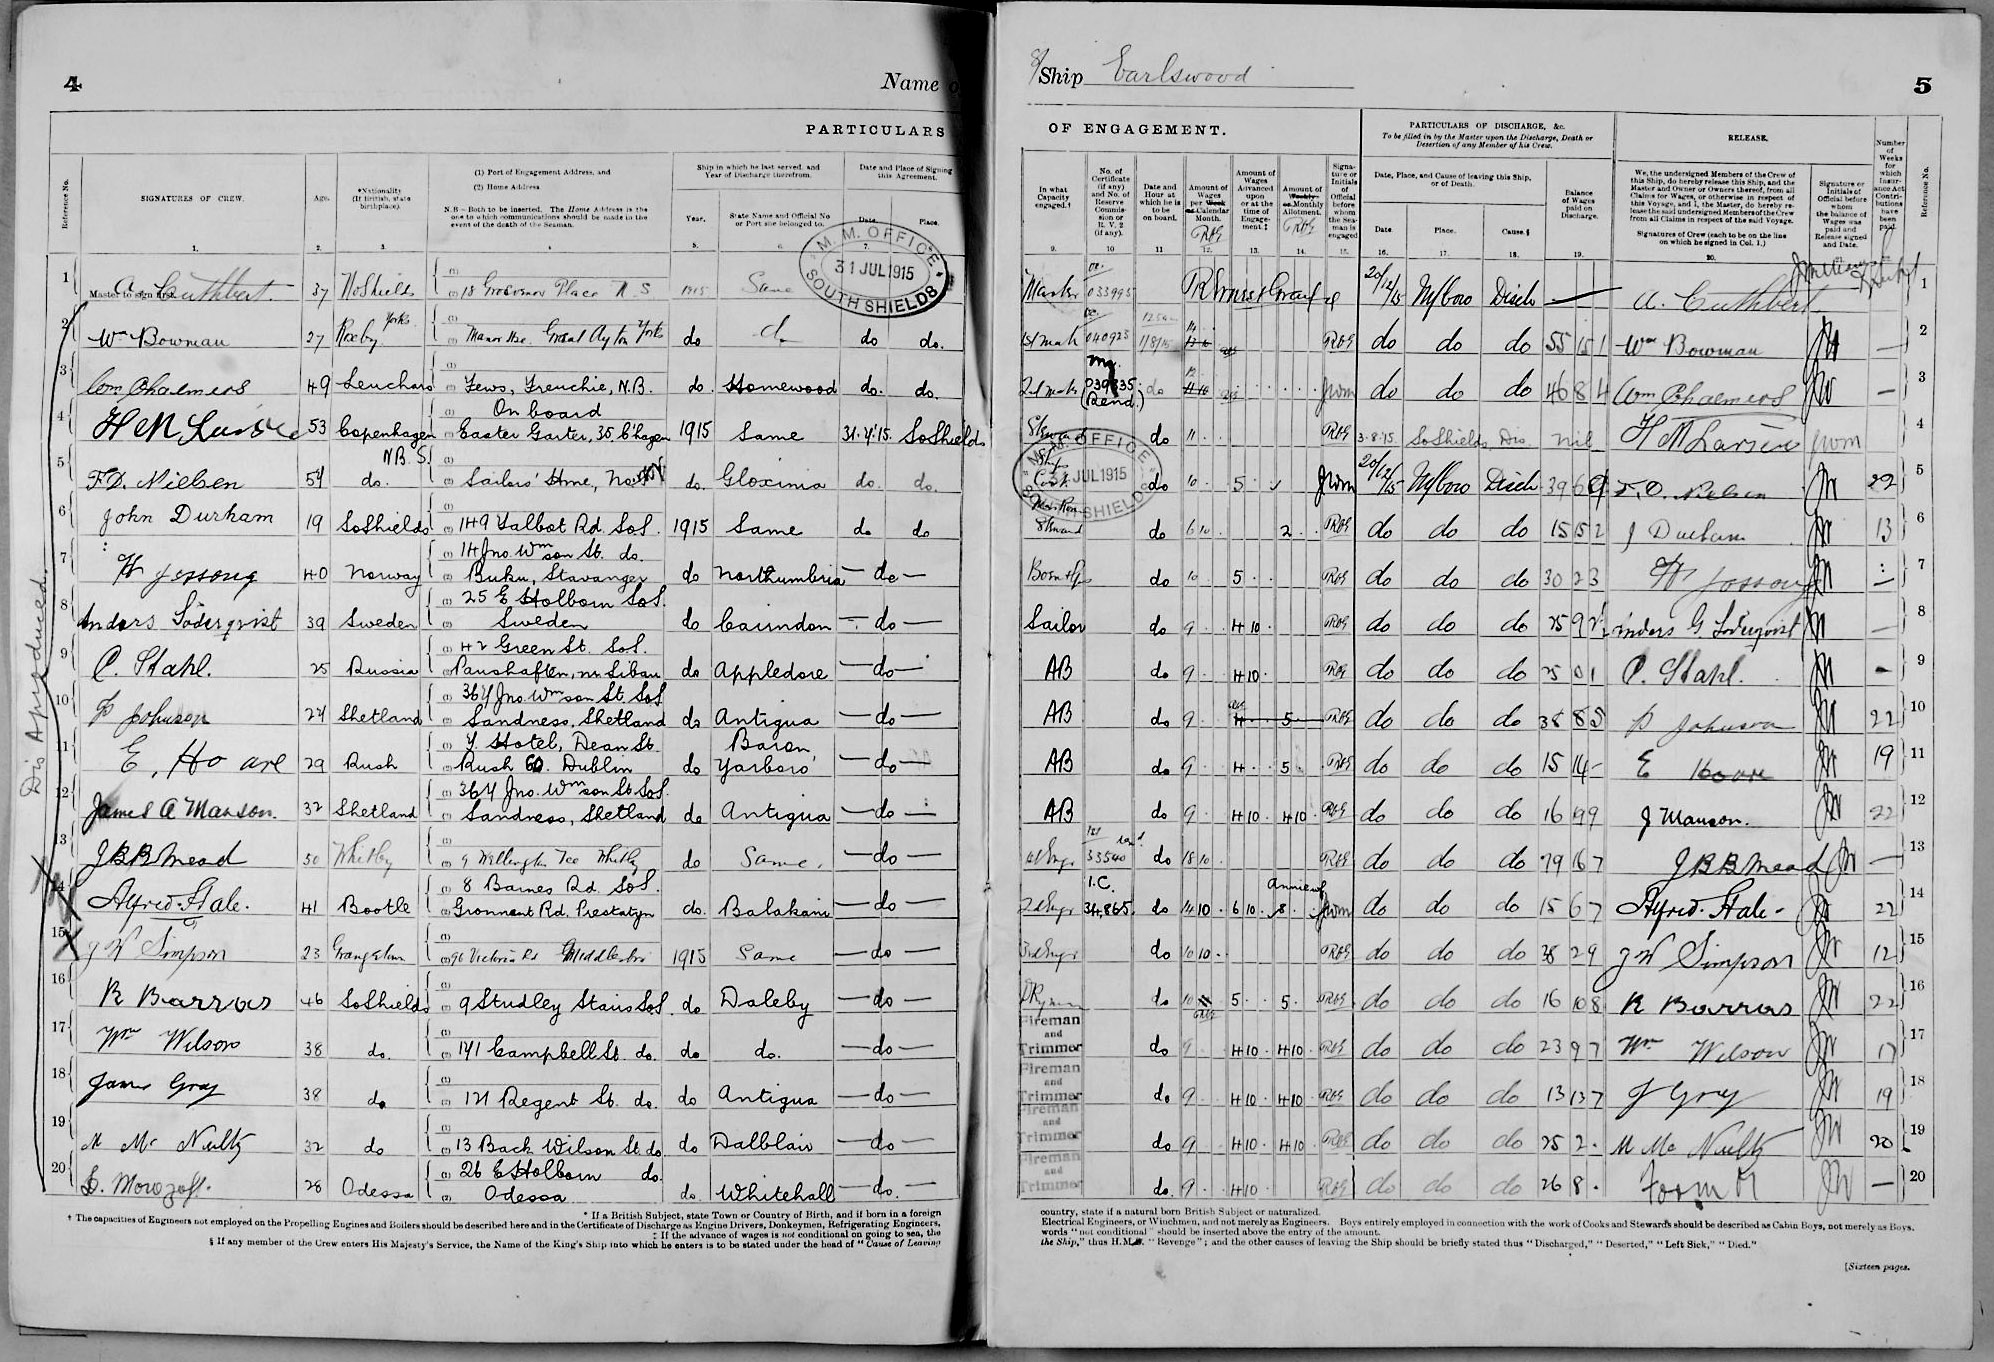 4
Name o
PARTICULARS
Reference No.
SIGNATURES OF CREW.
Age.
*Nationality (If British, state birthplace).
(1) Port of Engagement Address, and
(2) Home Address
N.B.—Both to be inserted. The Home Address is the one to which communications should be made in the event of the death of the Seaman.
Ship in which he last served, and Year of Discharge therefrom.
Year.
State Name and Official No or Port she belonged to.
Date and Place of Signing this Agreement.
Date.
Place.
1. 2. 3. 4. 5. 6. 7. 8.
M. M. OFFICE
31 JUL 1915
SOUTH SHIELDS
1 A. Cuthbert 37 No Shields 18 Grosvenor Place N. S 1915 Same
Master to sign first.
2 Wm Bowman 27 Roxby Yorks Manor Hse. Great Ayton Yorks do do do do.
3 Wm Chalmers 49 Leuchars Fews, Freuchie, N.B. do. Homewood do. do.
On board
4 H M Larsen 53 Copenhagen Easter Garter, 35, C'hagen 1915 Same 31.7.15. SoShields
N.B.S.
5 F. D. Nielsen 54 do. Sailors' Home, No. do. Gloxinia do. do.
6 John Durham 19 SoShields 149 Talbot Rd. SoS. 1915 Same do do
14 Jno Wmson St. do.
7 H Jossong 40 Norway Buku, Stavanger do Northumbria — do —
25 E Holborn SoS.
8 Anders Söderqvist 39 Sweden Sweden do Cairndon — do —
42 Green St. SoS.
9 P. Stahl. 25 Russia Paushaften, nr Libau do Appledore — do —
364 Jno. Wmson St. SoS
10 P Johnson 24 Shetland Sandness, Shetland do Antigua — do —
Y. Hotel, Dean St. Baron
11 E. Hoare 29 Rush Rush Co. Dublin do Yarboro' — do —
364 Jno. Wmson St SoS.
12 James A Manson. 32 Shetland Sandness, Shetland do Antigua — do —
13 J B B Mead 50 Whitby 9 Wellington Tce Whitby do Same. — do —
8 Barnes Rd. SoS.
14 Alfred Hale. 41 Bootle Gronnant Rd, Prestatyn do. Balakani — do —
15 J W Simpson 23 Grangetown 96 Victoria Rd Middlesbro 1915 Same — do —
16 R Barras 46 SoShields 9 Studley Stairs SoS. do Daleby — do —
17 Wm Wilson 38 do. 141 Campbell St. do. do do. — do —
18 James Gray 38 do 121 Regent St. do. do Antigua — do —
19 M Mc Nulty 32 do 13 Back Wilson St. do do Dalblair — do —
26 E Holborn do.
20 28 Odessa Odessa do. Whitehall — do. —
* If a British Subject, state Town or Country of Birth, and if born in a foreign
† The capacities of Engineers not employed on the Propelling Engines and Boilers should be described here and in the Certificate of Discharge as Engine Drivers, Donkeymen, Refrigerating Engineers,
‡ If the advance of wages is not conditional on going to sea, the
§ If any member of the Crew enters His Majesty's Service, the Name of the King's Ship into which he enters is to be stated under the head of "Cause of Leaving
Ship Earlswood
5
OF ENGAGEMENT.
PARTICULARS OF DISCHARGE, &c.
To be filled in by the Master upon the Discharge, Death or Desertion of any Member of his Crew.
RELEASE.
In what Capacity engaged.†
No. of Certificate (if any) and No. of Reserve Commission or R. V. 2 (if any).
Date and Hour at which he is to be on board.
Amount of Wages per Week or Calendar Month.
Amount of Wages Advanced upon or at the time of Engagement.‡
Amount of Weekly or Monthly Allotment.
Signature or Initials of Official before whom the Seaman is engaged
Date, Place, and Cause of leaving this Ship, or of Death.
Date. Place. Cause.§
Balance of Wages paid on Discharge.
We, the undersigned Members of the Crew of this Ship, do hereby release this Ship, and the Master and Owner or Owners thereof, from all Claims for Wages, or otherwise in respect of this Voyage, and I, the Master, do hereby release the said undersigned Members of the Crew from all Claims in respect of the said Voyage.
Signatures of Crew (each to be on the line on which he signed in Col. 1.)
Signature or Initials of Official before whom the balance of Wages was paid and Release signed and Date.
Number of Weeks for which Insurance Act Contributions have been paid.
Reference No.
9. 10 11 12. 13. 14. 15. 16. 17. 18. 19. 20.
Master 033995 20/12/15 M/boro Disch — A. Cuthbert 1
1st Mate 040923 1/8/15 RBG do do do 55 15 1 Wm Bowman — 2
2nd Mate 039835 (Rend.) do do do do 46 8 4 Wm Chalmers — 3
Steward do 11 RBG 3.8.15 SoShields Dis. nil H M Larsen 4
M. M. OFFICE
JUL 1915
SOUTH SHIELDS
Ship Cook do 10 5 20/12/15 M/boro Disch 39 6 9 F. D. Nielsen 22 5
Steward do 6 10 2 RBG do do do 15 15 2 J Durham 13 6
do 10 5 RBG do do do 30 2 3 H Jossong — 7
Sailor do 9 4 10 RBG do do do 25 9 Anders G Söderqvist — 8
AB do 9 4 10 RBG do do do 25 0 1 P. Stahl. - 9
AB do 9 4 5 RBG do do do 38 8 5 P Johnson 22 10
AB do 9 4 5 RBG do do do 15 14 - E Hoare 19 11
AB do 9 4 10 4 10 RBG do do do 16 19 9 J Manson. 22 12
1st Engr 33540 do 18 10 RBG do do do 79 16 7 J B B Mead — 13
2d Engr 1.C. 34,865. do 14 10 6 10 8 do do do 15 6 7 Alfred Hale - 22 14
3rd Engr do 10 10 RBG do do do 38 2 9 J W Simpson 12 15
do 10 5 5 RBG do do do 16 10 8 R Barras 22 16
Fireman and Trimmer do 9 4 10 4 10 RBG do do do 23 9 7 Wm Wilson 17 17
Fireman and Trimmer do 9 4 10 4 10 RBG do do do 13 13 7 J Gray 19 18
Fireman and Trimmer do 9 4 10 4 10 RBG do do do 25 2 . M Mc Nulty 20 19
Fireman and Trimmer do. 9 4 10 RBG do do do 26 8 . — 20
country, state if a natural born British Subject or naturalized.
Electrical Engineers, or Winchmen, and not merely as Engineers. Boys entirely employed in connection with the work of Cooks and Stewards should be described as Cabin Boys, not merely as Boys.
words "not conditional" should be inserted above the entry of the amount.
the Ship," thus H.M.S. "Revenge"; and the other causes of leaving the Ship should be briefly stated thus "Discharged," "Deserted," "Left Sick," "Died."
[Sixteen pages.